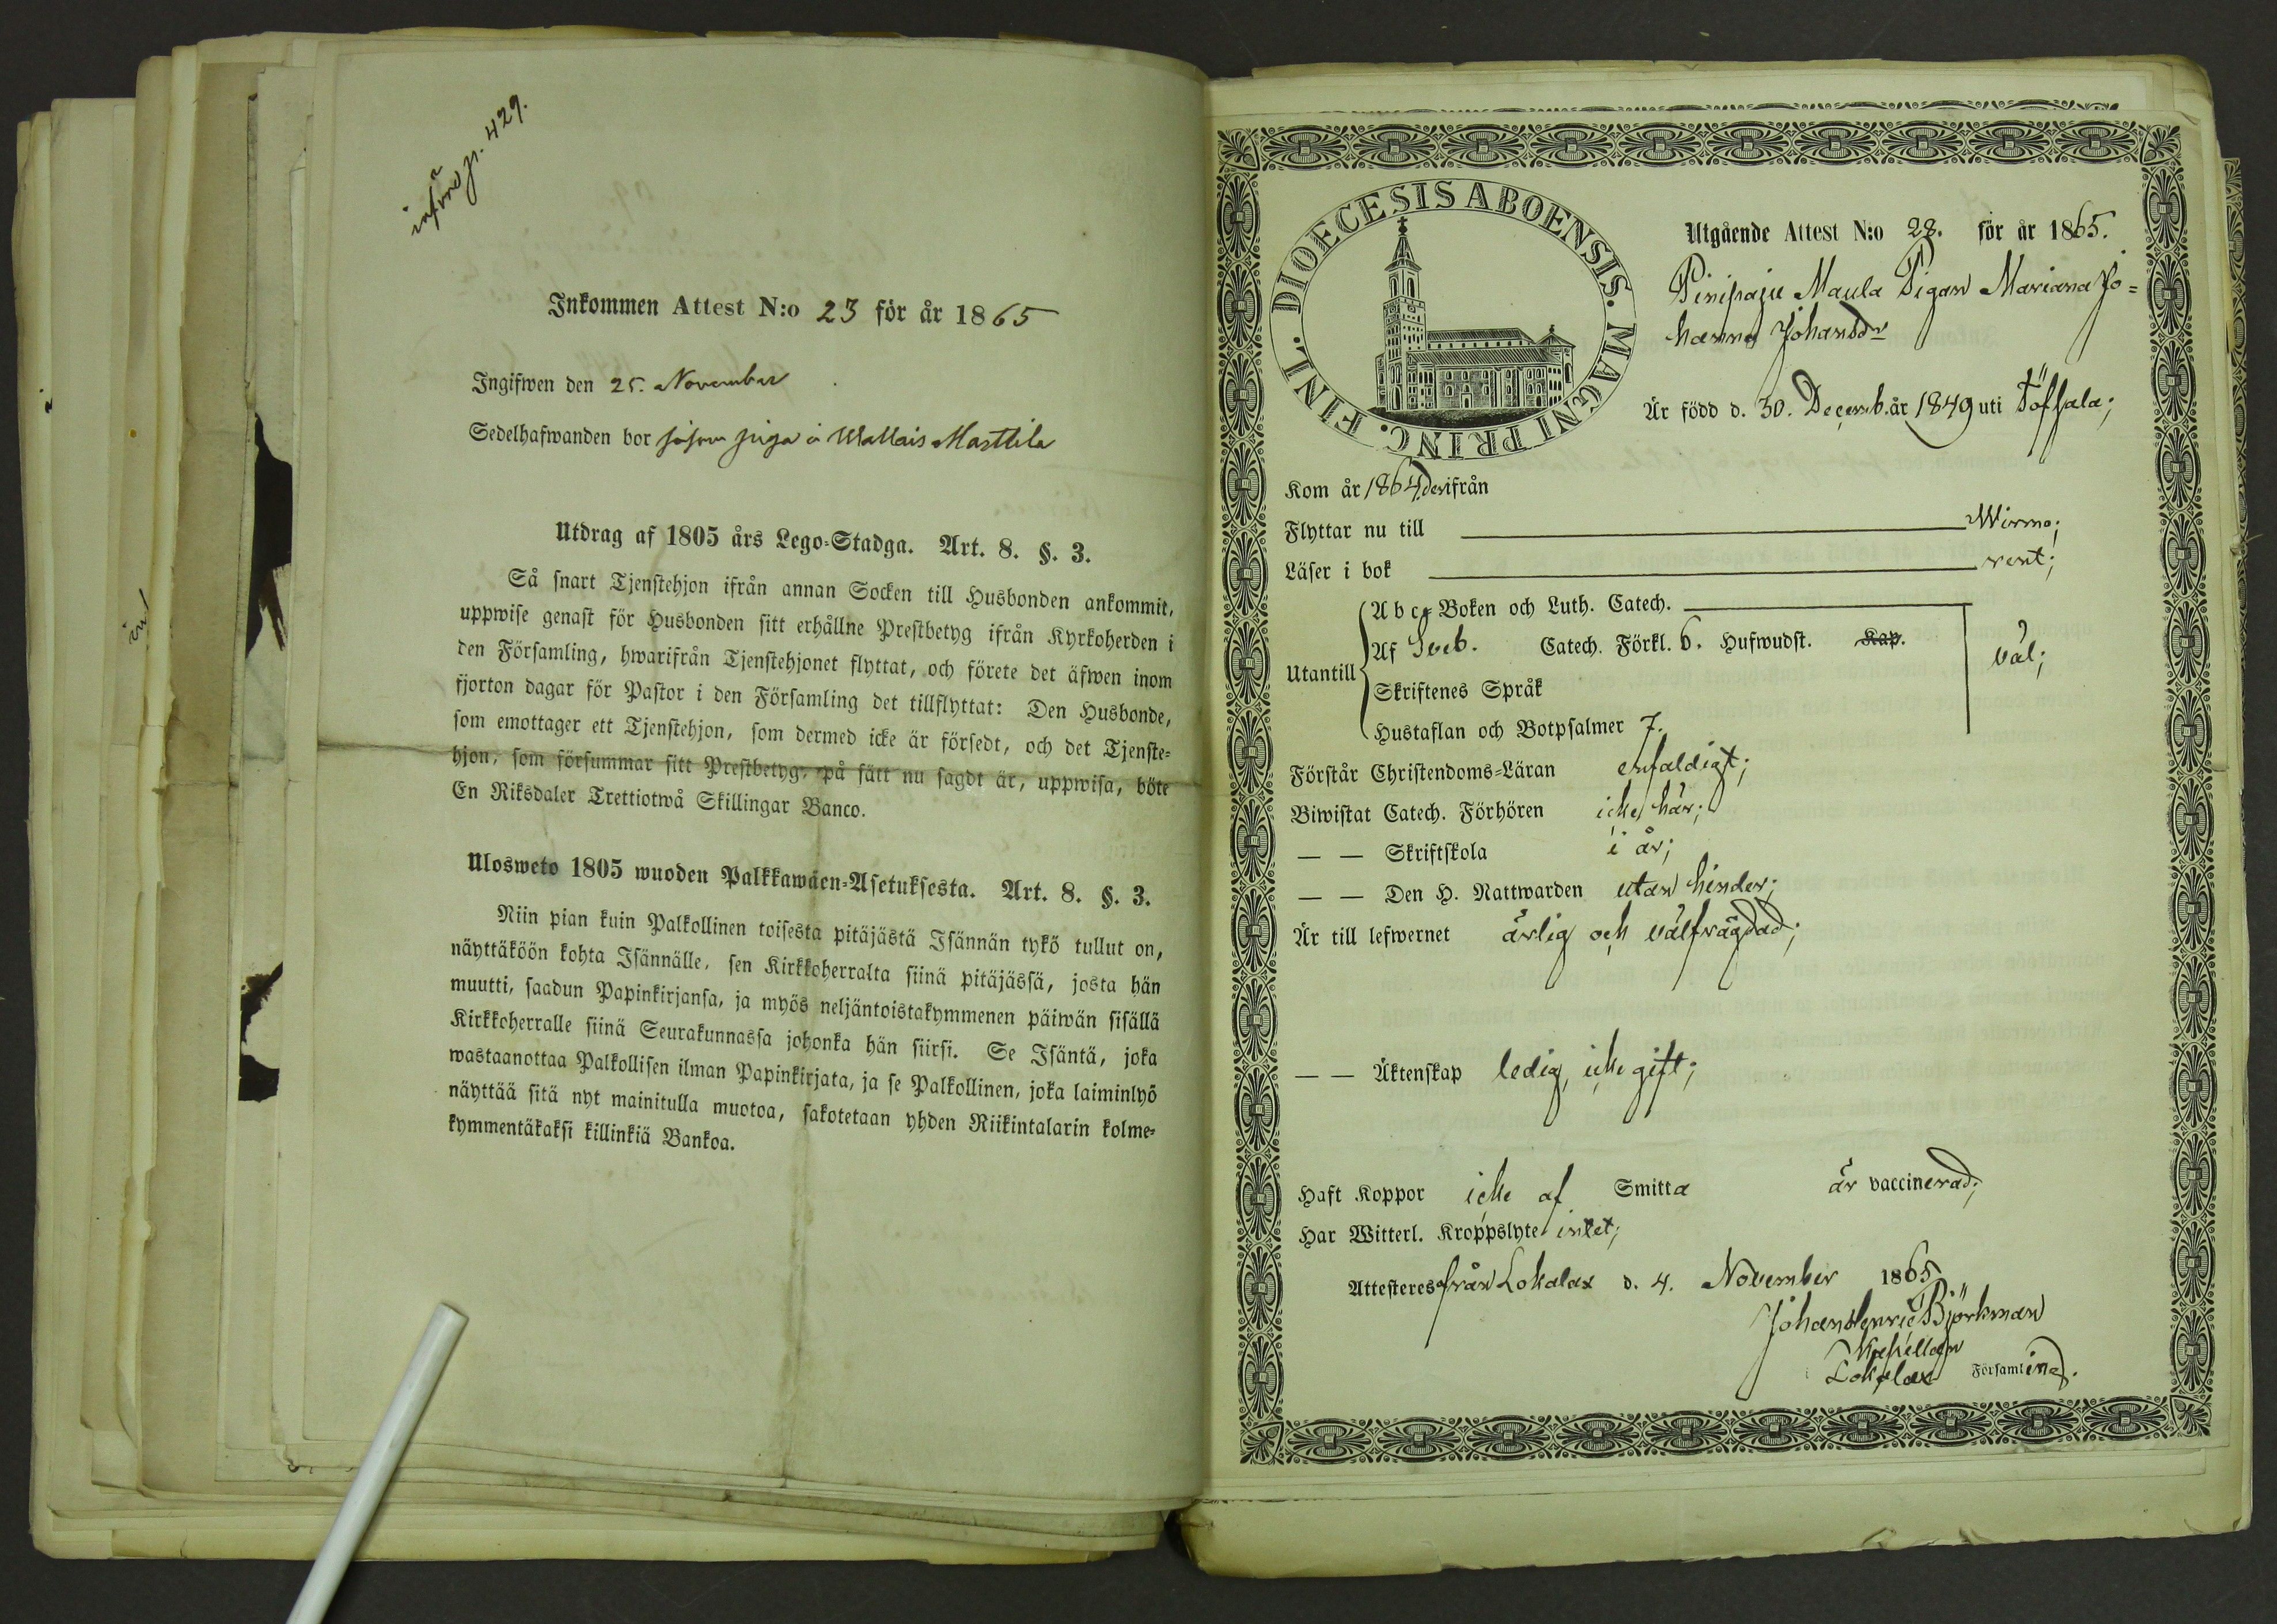 införd p. 429.
Inkommen Attest N:o 23 för år 1865
Ingifwen den 25. November
Sedelhafwanden bor såsom piga å Wallais Marttila
Utdrag af 1805 års Lego-Stadga. Art. 8. §. 3.
Så snart Tjenstehjon ifrån annan Socken till Husbonden ankommit,
uppwise genast för Husbonden sitt erhållne Prestbetyg ifrån Kyrkoherden i
den Församling, hwarifrån Tjenstehjonet flyttat, och förete det äfwen inom
fjorton dagar för Pastor i den Församling det tillflyttat: Den Husbonde,
som emottager ett Tjenstehjon, som dermed icke är försedt, och det Tjenste-
hjon, som försummar sitt Prestbetyg, på sätt nu sagdt är, uppwisa, böte
En Riksdaler Trettiotwå Skillingar Banco.
Ulosweto 1805 wuoden Palkkawäen-Asetuksesta. Art. 8. §. 3.
Niin pian kuin Palkollinen toisesta pitäjästä Isännän tykö tullut on,
näyttäköön kohta Isännälle, sen Kirkkoherralta siinä pitäjässä, josta hän
muutti, saadun Papinkirjansa, ja myös neljäntoistakymmenen päiwän sisällä
Kirkkoherralle siinä Seurakunnassa johonka hän siirsi. Se Isäntä, joka
wastaanottaa Palkollisen ilman Papinkirjata, ja se Palkollinen, joka laiminlyö
näyttää sitä nyt mainitulla muotoa, sakotetaan yhden Riikintalarin kolme-
kymmentäkaksi killinkiä Bankoa.
DIOECESIS ABOENSIS. MAGNI PRINC. FINL.
Utgående Attest N:o 28. för år 1865.
Pinipaju Maula Pigan Mariana Jo=
hanna Johansdr
Är född d. 30. Decemb. år 1849 uti Töffsala;
Kom år 1864 derifrån
Flyttar nu till Wirmo;
Läser i bok rent;
Utantill
Abc-Boken och Luth. Catech.
Af Sveb. Catech. Förkl. 6. Hufwudst. Kap.
väl;
Skriftenes Språk
Hustaflan och Botpsalmer 7.
Förstår Christendoms-Läran enfaldigt;
Biwistat Catech. Förhören icke här;
— — Skriftskola i år;
— — Den H. Nattwarden utan hinder;
Är till lefwernet ärlig och välfrägdad;
— — Äktenskap ledig, icke gift;
Haft Koppor icke af Smitta är vaccinerad;
Har Witterl. Kroppslyte intet;
Attesteres från Lokalax d. 4. November 1865
Johan Henric Björkman
Kapellan
Lokalax Församling.